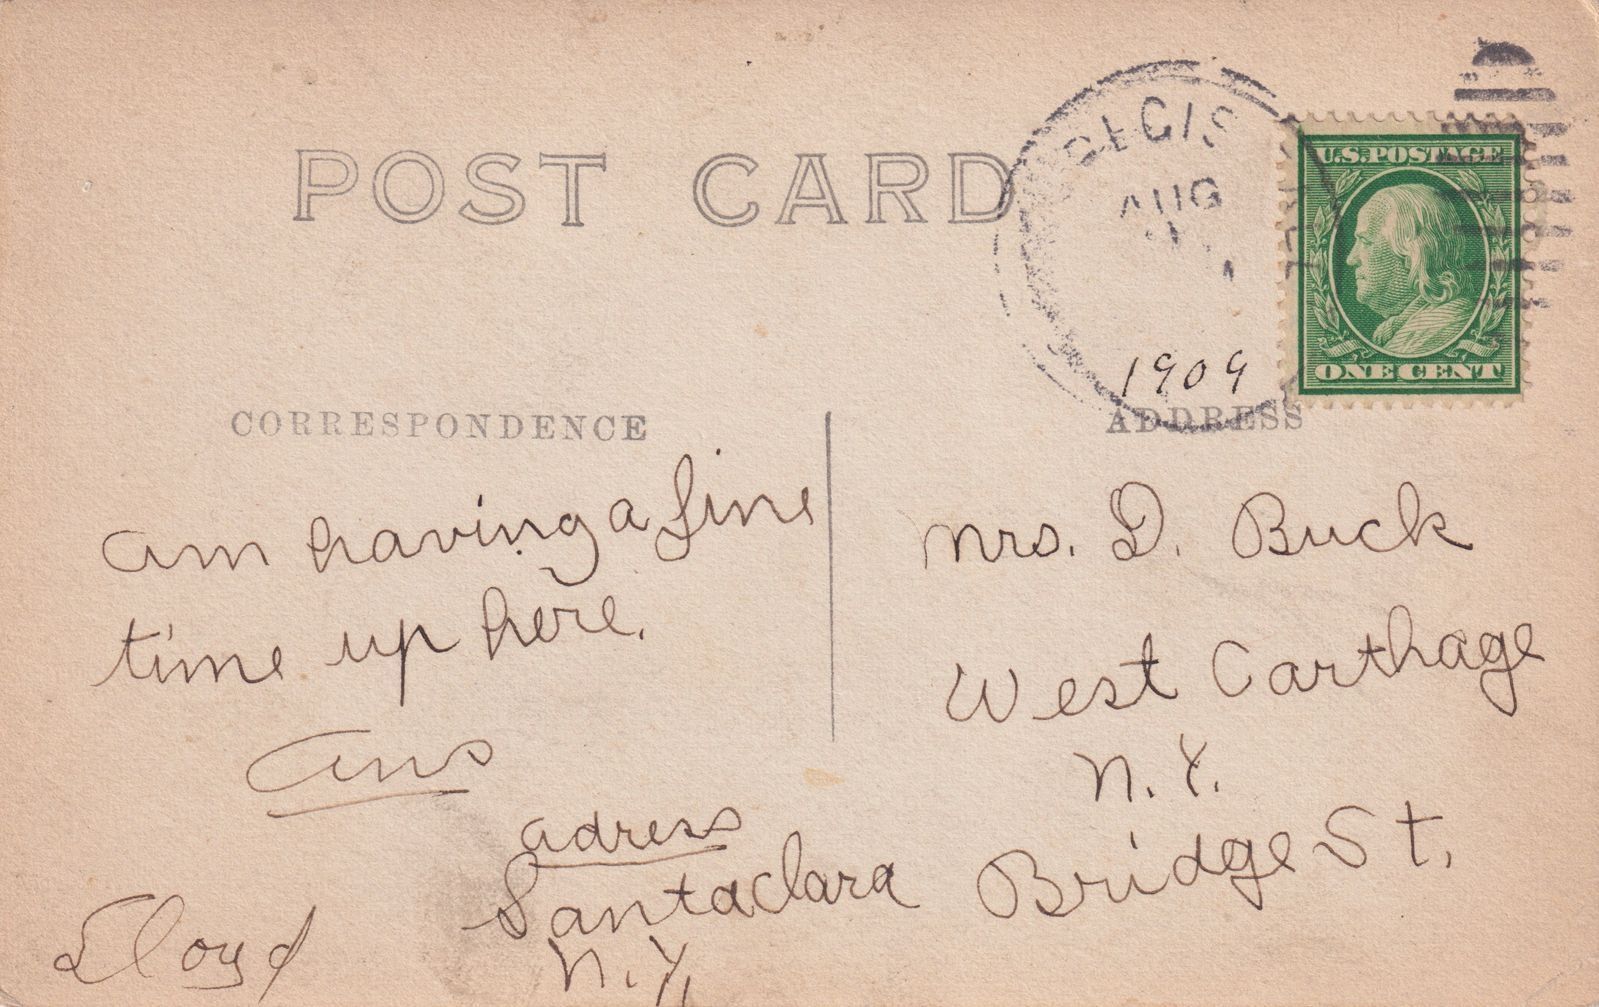 POST CARD
REGIS
AUG
1909
U.S. POSTAGE
ONE CENT
CORRESPONDENCE
ADDRESS
am having a fine
time up here.
Ans
adress
Santaclara
N.Y.
Lloyd
Mrs. D. Buck
West Carthage
N.Y.
Bridge St.